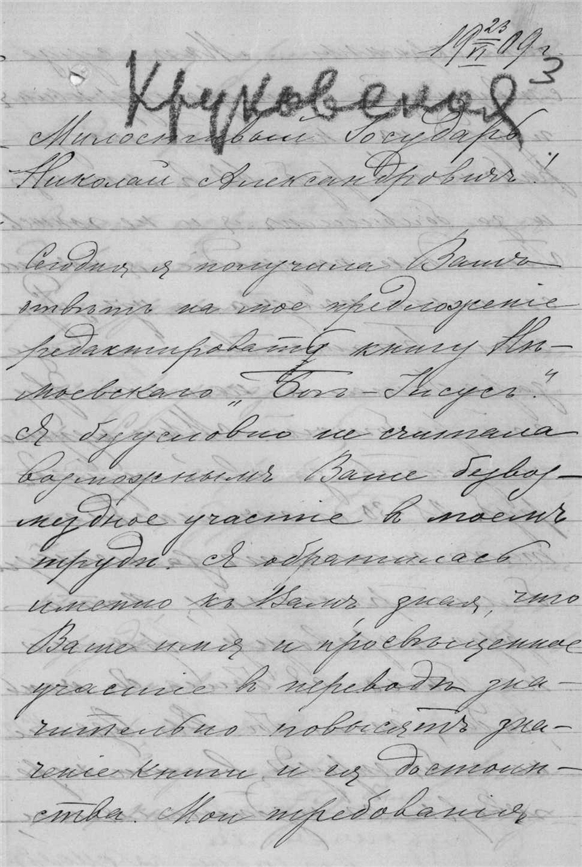 19 23/VI 09 г.
3
Круковская
Милостивый Государь
Николай Александровичъ!
Сегодня я получила Вашъ
отвѣтъ на мое предложеніе
редактировать книгу Нѣ-
моевскаго „Богъ-Іисусъ".
Я безусловно не считала
возможнымъ Ваше безвоз-
мездное участіе въ моемъ
трудѣ. Я обратилась
именно къ Вамъ зная, что
Ваше имя и просвѣщенное
участіе въ переводѣ зна-
чительно повысятъ зна-
ченіе книги и ея достоин-
ства. Мои требованія